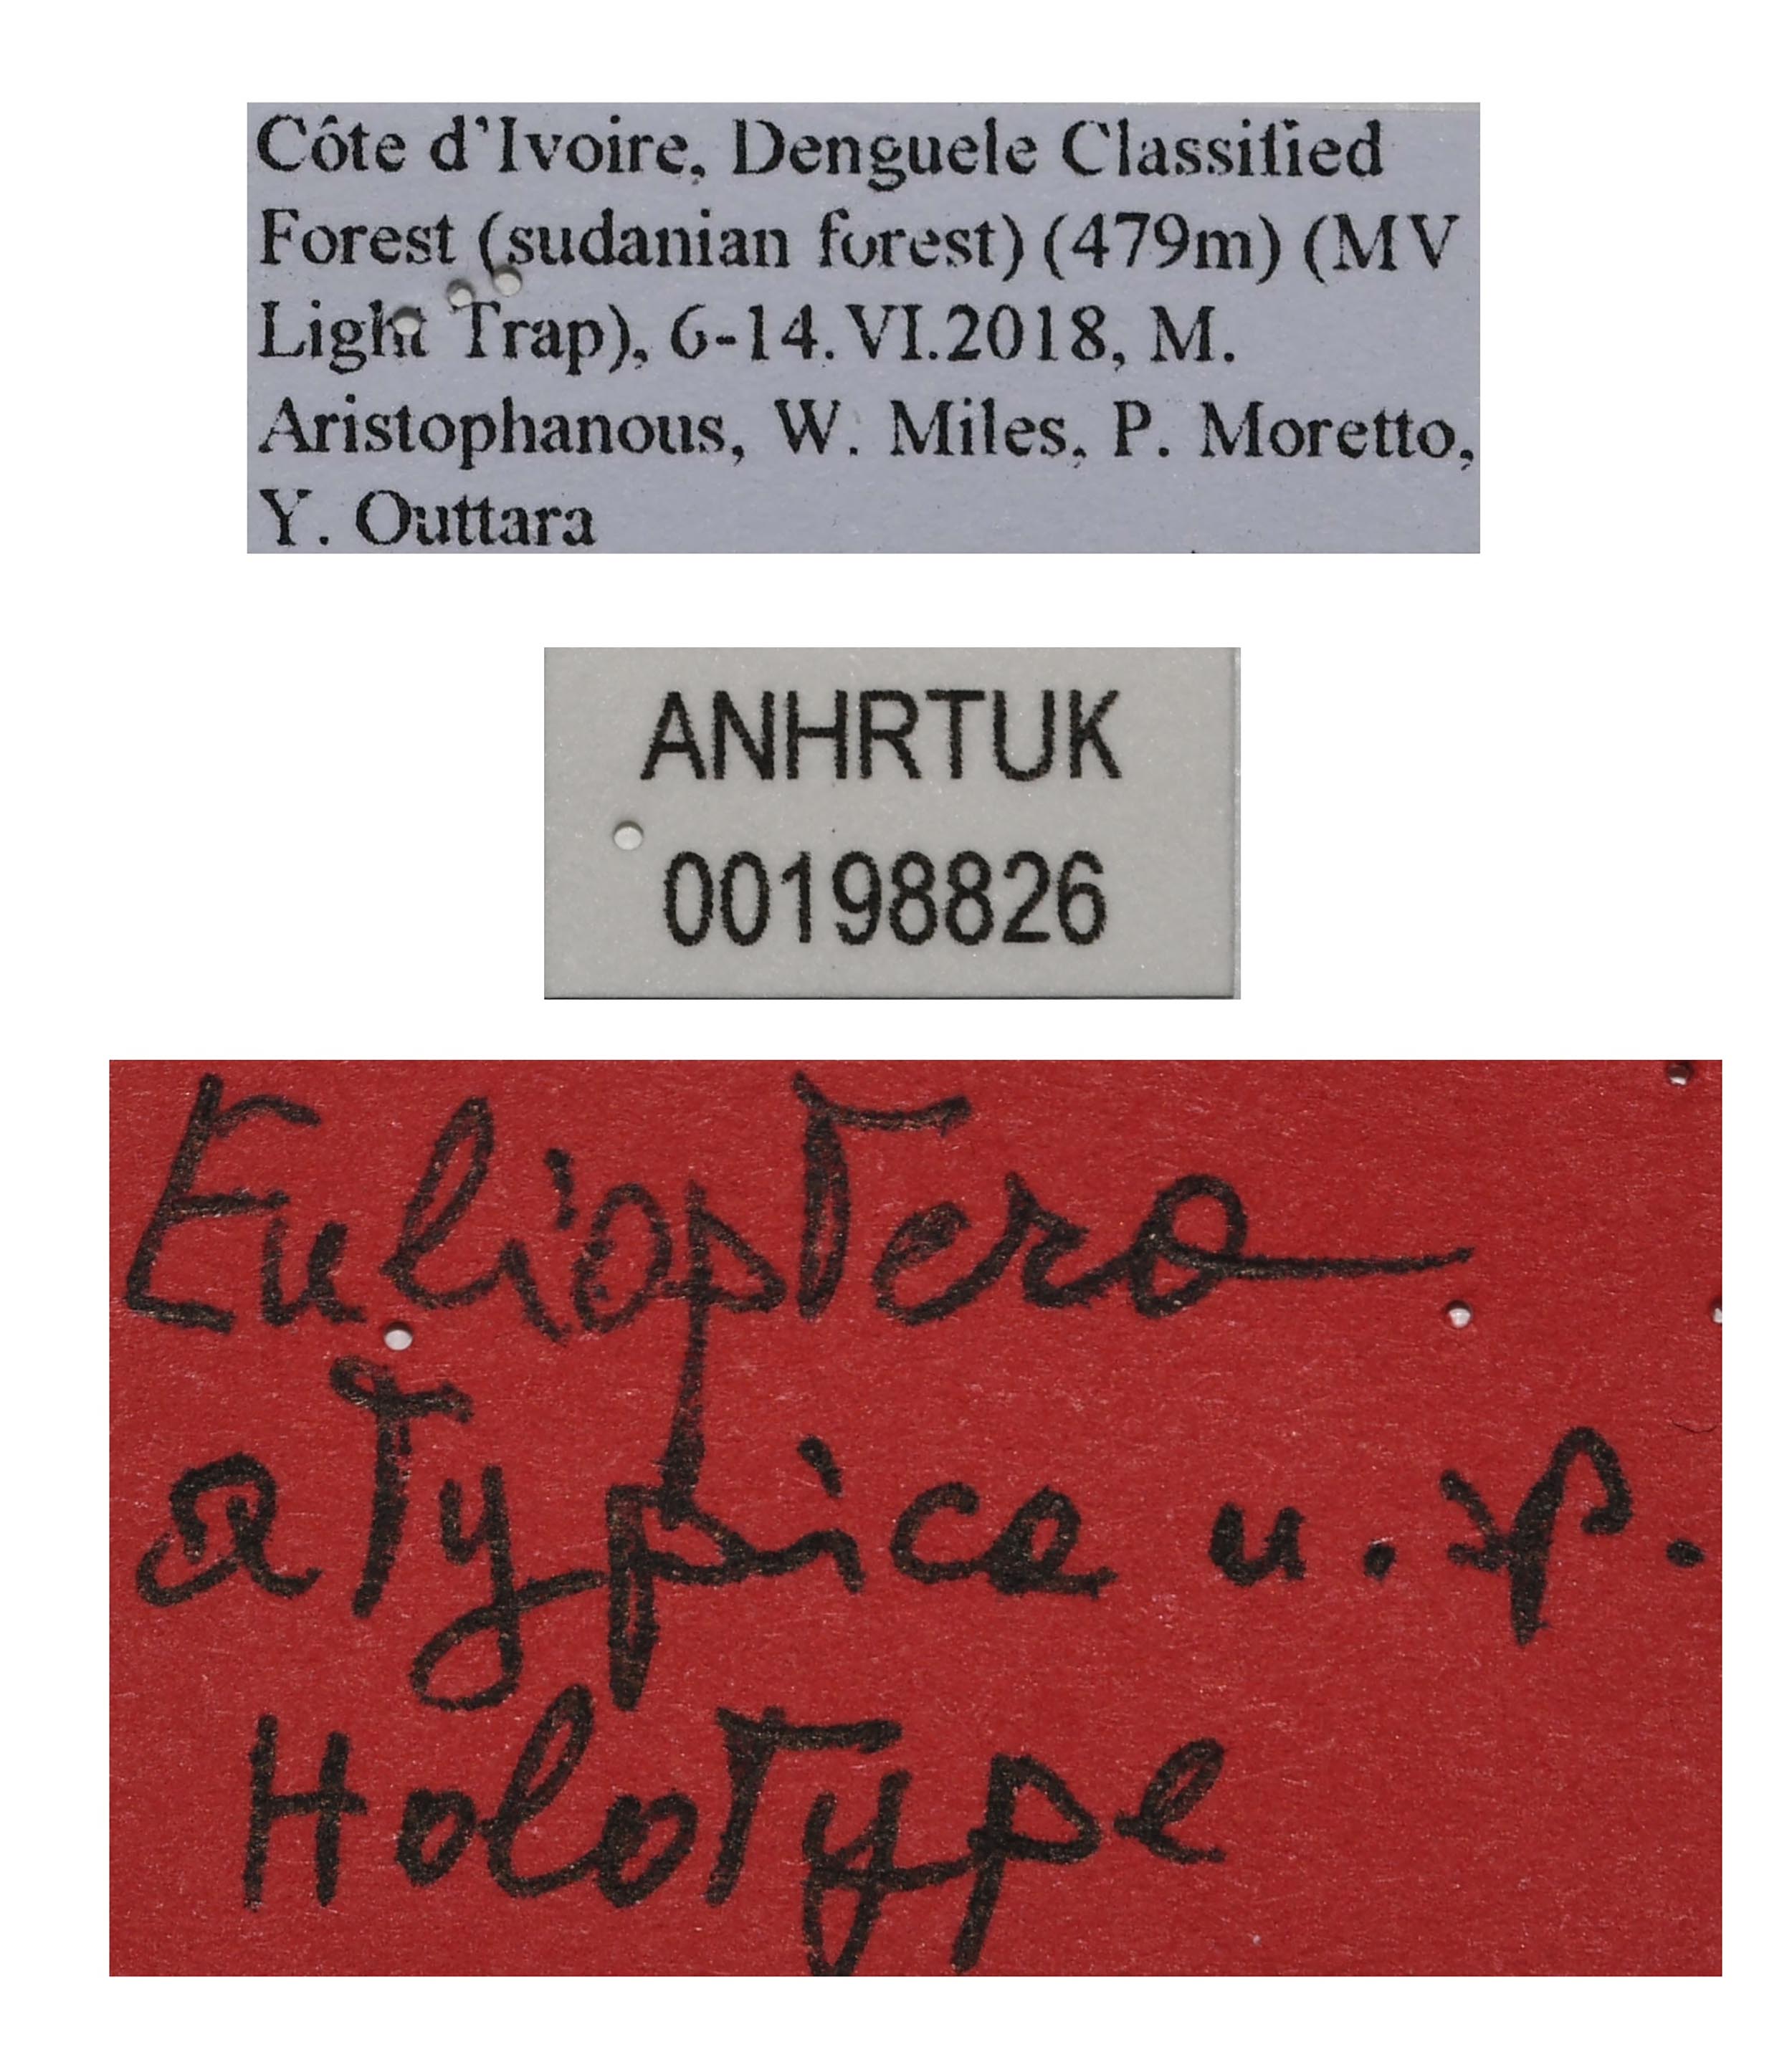 Côte d'Ivoire, Denguele Classified
Forest (sudanian forest) (479m) (MV
Light Trap), 6-14.VI.2018, M.
Aristophanous, W. Miles, P. Moretto,
Y. Outtara
ANHRTUK
00198826
Eulioptera
atypica n. sp.
Holotype